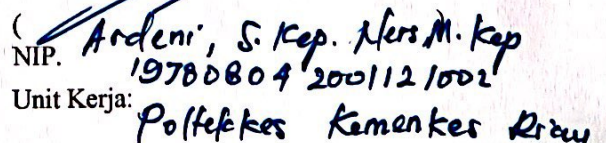 ( Ardeni, S. Kep. Ners, M. Kep
NIP. 19780804 200112 1002
Unit Kerja: Poltekkes Kemenkes Riau